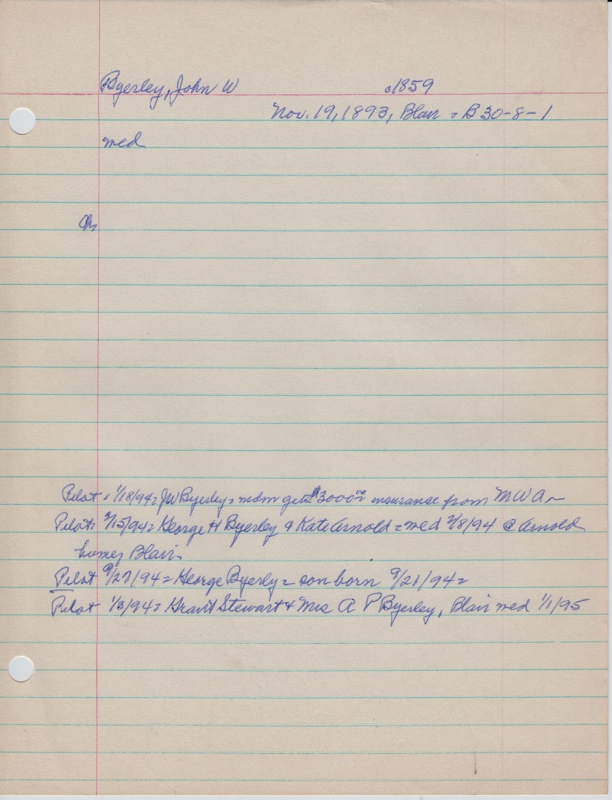 Byerley, John W c1859
Nov. 19, 1893, Blair = B 30-8-1
med
Ch
Pilot = 1/18/94 = JW Byerley = mdm gets $3000 00 insuranse from MWA
Pilot = 2/15/94 = George H Byerley & Kate Arnold = med 2/8/94 @ Arnold
home, Blair
Pilot 9/27/94 = George Byerly = son born 9/21/94 =
Pilot 1/3/94 = Grant Stewart & Mrs A P Byerley, Blair med 1/1/95